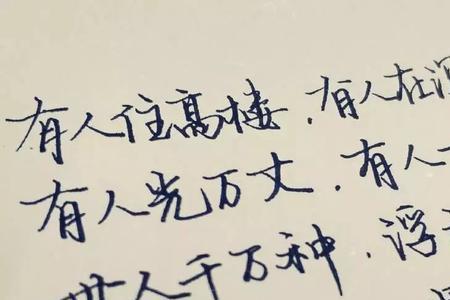 有人住高楼,有人在深
有人光万丈,有人一
世人千万种,浮